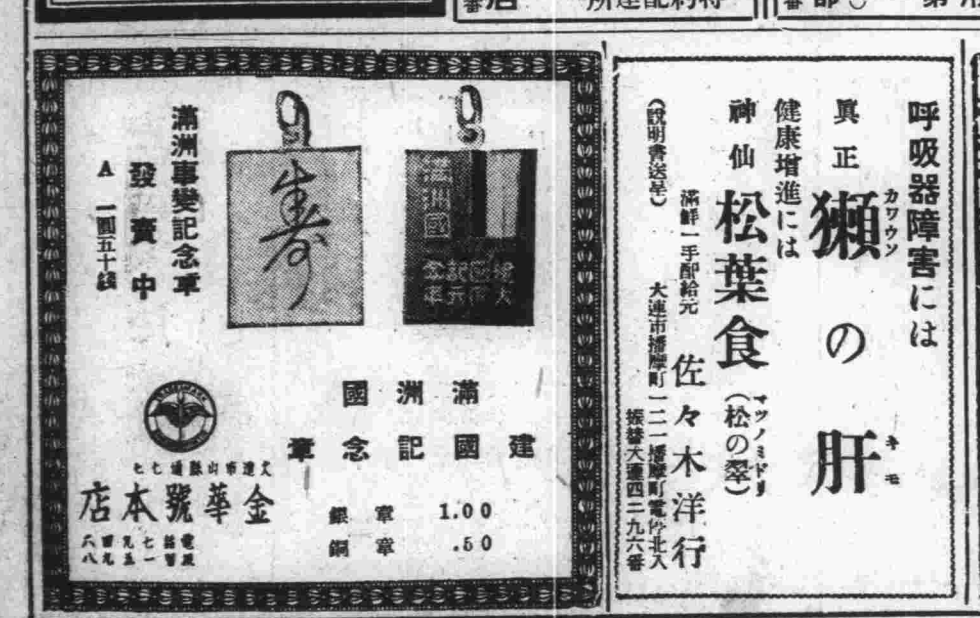 呼吸器障害には
眞正 獺の肝
カワウソ
キモ
健康増進には
神仙 松葉食(松の翠)
マツノミドリ
滿鮮一手配給元 佐々木洋行
(説明書送呈) 大連市播磨町一二一播磨町電停北入
振替大連四二九六番
滿洲事變記念章
發賣中
A 一圓五十錢
壽
滿洲國
建國記念章
滿洲國
建國記念章
銀章 1.00
銅章 .50
大連市山縣通七七
金華號本店